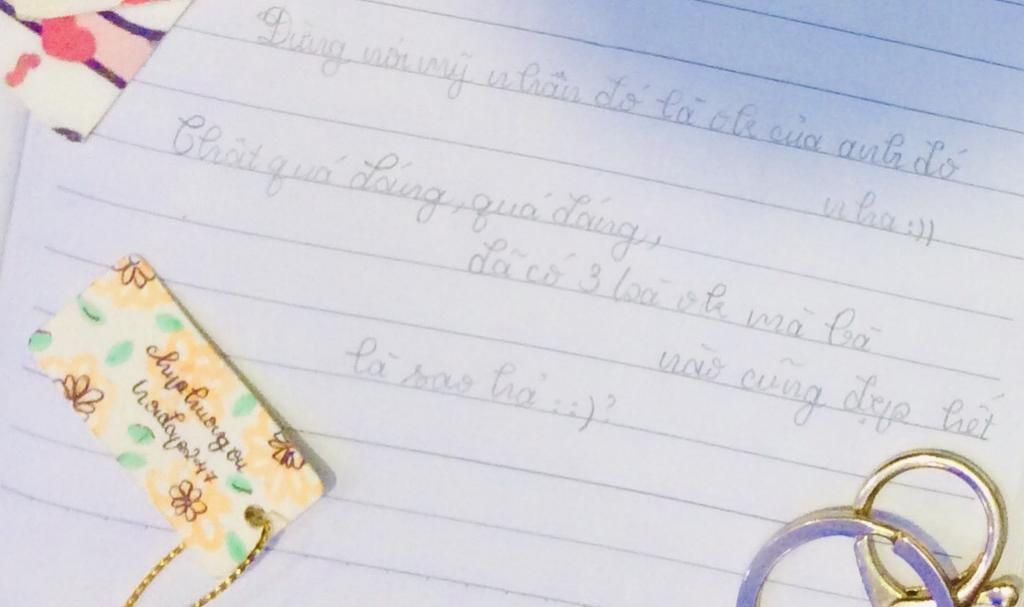 Đừng nói mỹ nhân đó là vk của anh đó
nha :))
Thật quá đáng, quá đáng,
đã có 3 bà vk mà bà
nào cũng đẹp hết
là sao hả ::)?